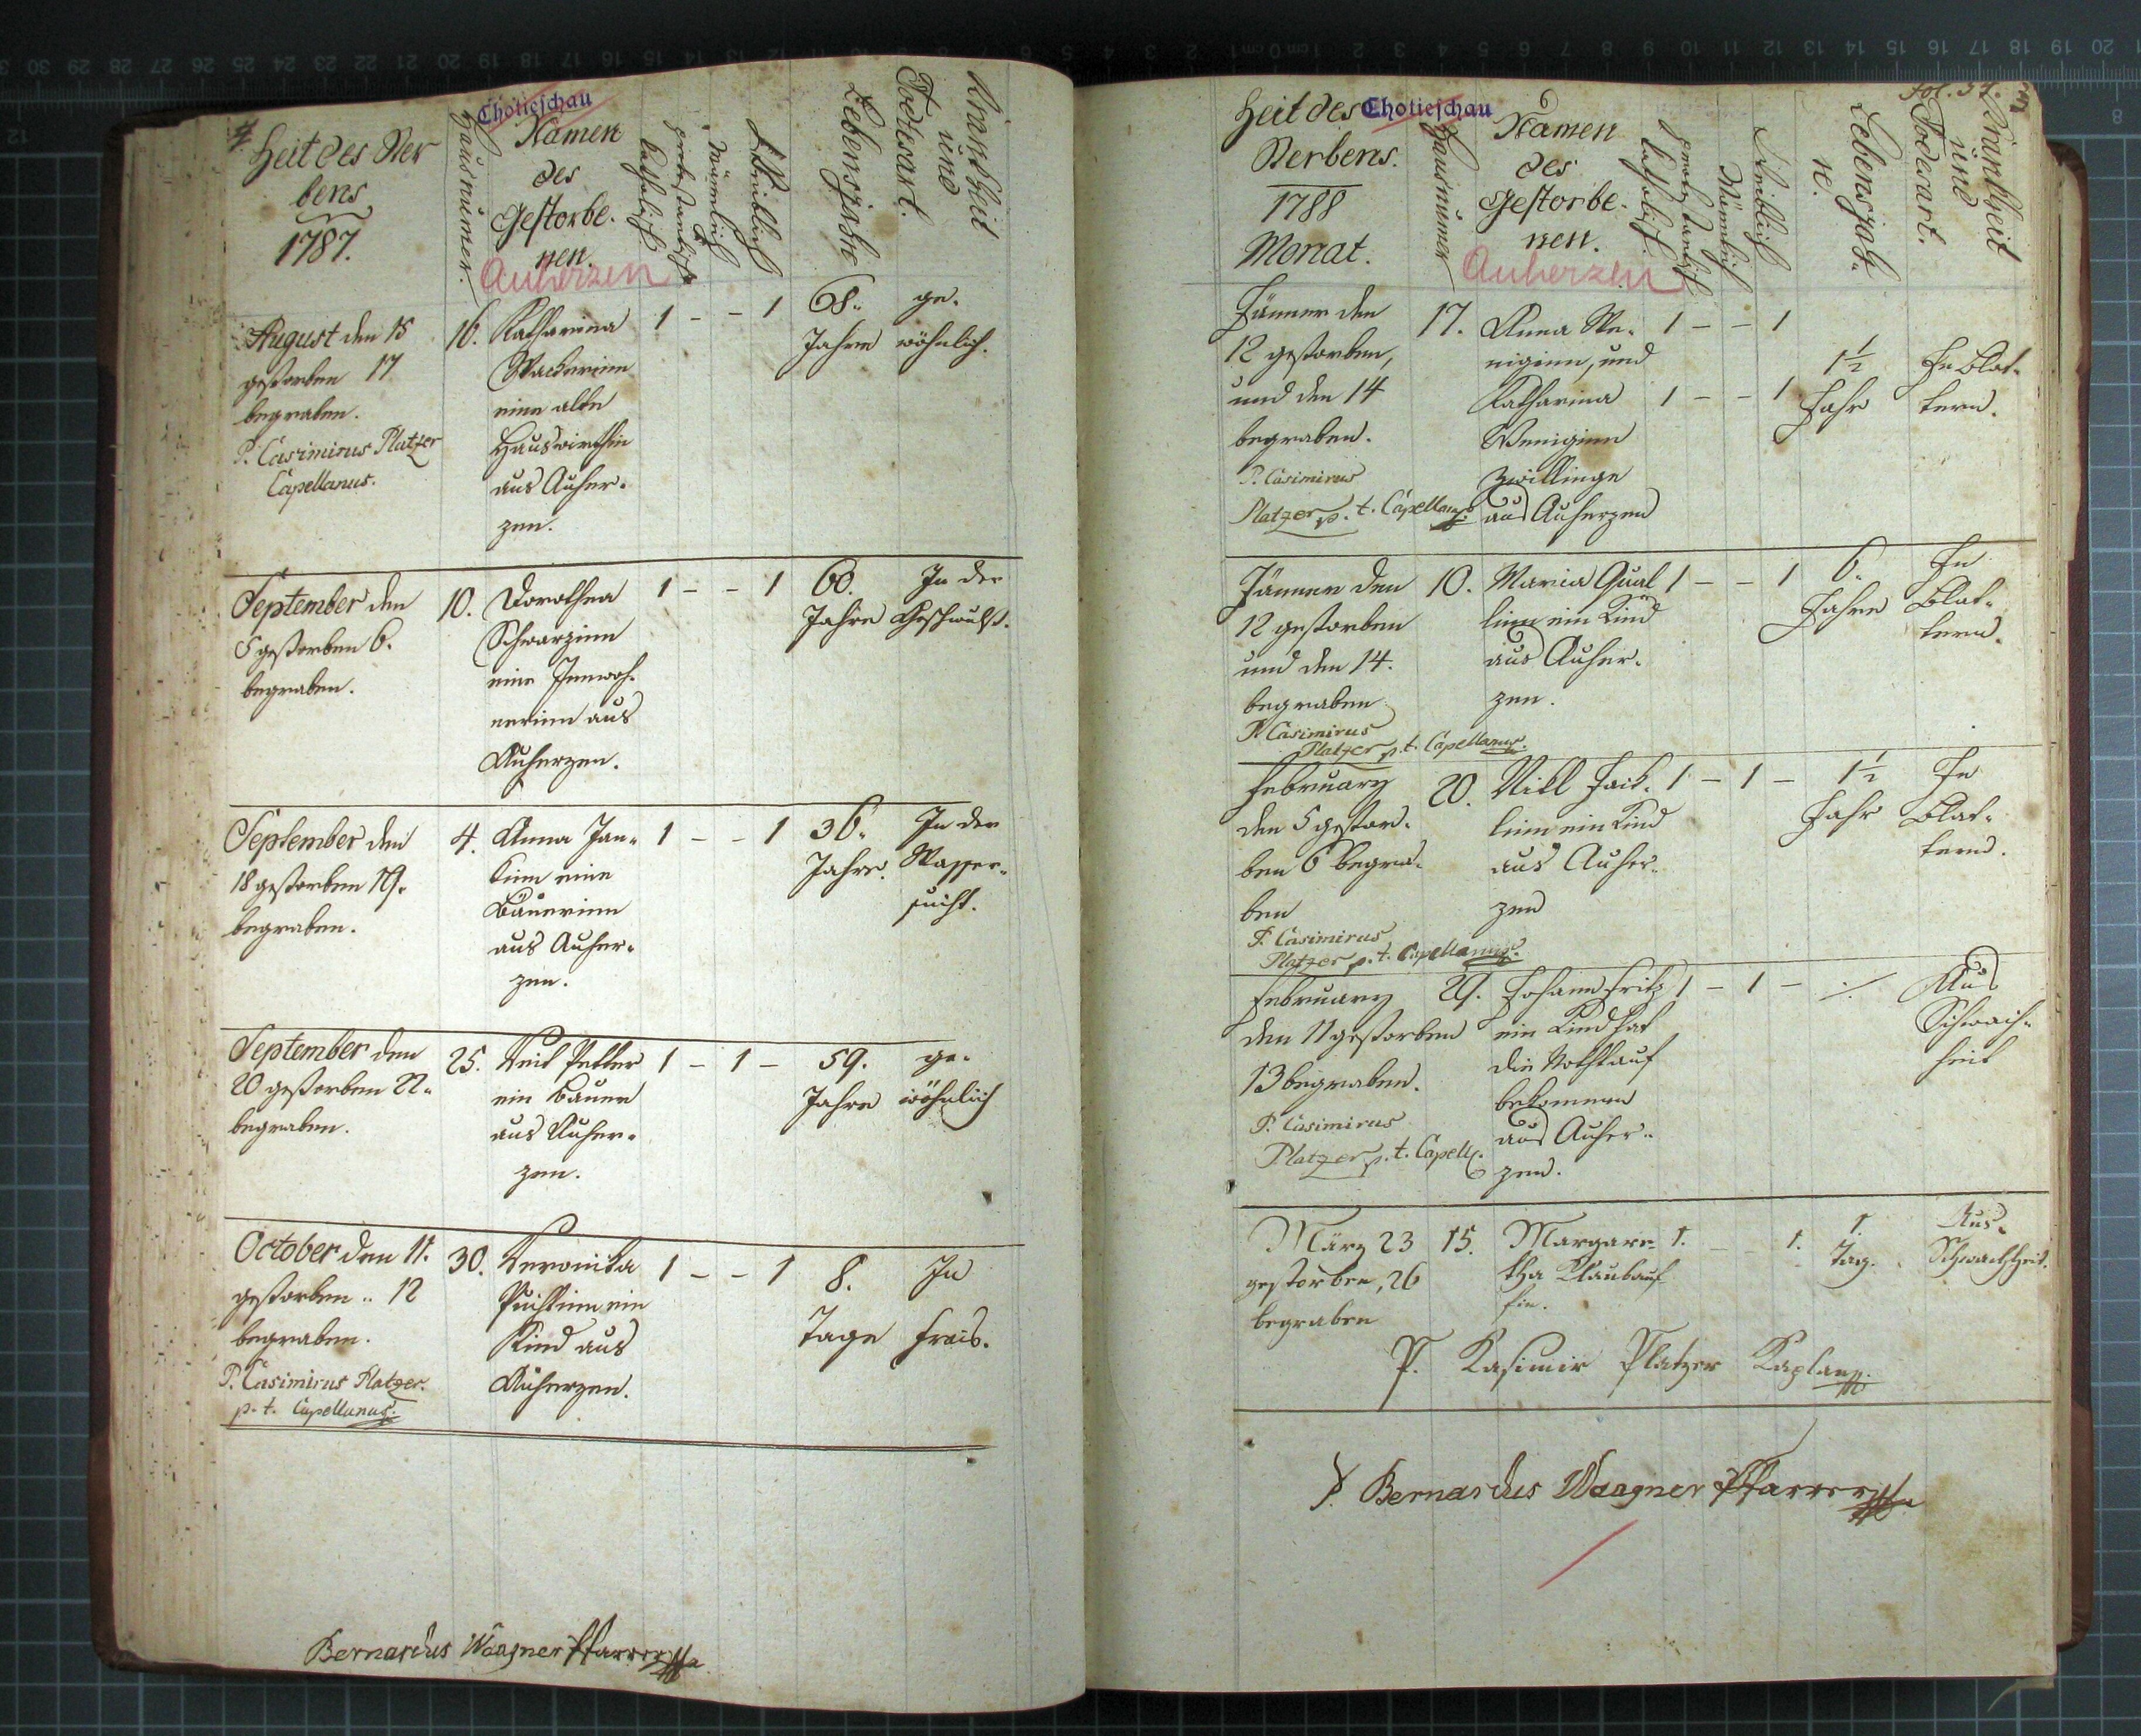 Chotieschau
Zeit des Ster
bens
1787.
Hausnumer.
Namen
des
Gestorbe-
nen.
Auherzen
katholisch
protestantisch
Mänlich
Weiblich
Lebensjahre
Krankheit
und
Todesart.
August den 15
gestorben 17
begraben.
P. Casimirus Platzer
Capellanus.
16.
Katharina
eine alte
Hauswirthin
aus Auher-
zen.
1 - - 1
68..
Jahre
ge-
wöhnlich.
September den
5 gestorben 6.
begraben.
10.
Dorothea
Schwarzinn
eine Innwoh-
nerinn aus
Auherzen.
1 - - 1
60.
Jahre
In der
Geschwulst.
September den
18 gestorben 19.
begraben.
4.
Anna Jan-
kinn eine
Bäuerinn
aus Auher-
zen.
1 - - 1
36.
Jahre.
In der
Wasser-
sucht.
September den
20 gestorben 22.
begraben.
25.
Veit Peller
ein Bauer
aus Auher-
zen.
1 - 1 -
59.
Jahre
ge-
wöhnlich
October den 11.
gestorben .. 12
begraben.
P. Casimirus Platzer.
p. t. Capellanus.
30.
Veronika
ein
Kind aus
Auherzen.
1 - - 1
8.
Tage
In
Frais.
Bernardus Waagner Pfarrer
fol. 37.
Zeit des
Sterbens.
1788
Monat.
Chotieschau
Hausnumer
Namen
des
Gestorbe-
nen.
Auherzen
katholisch.
protestantisch
Männlich
Weiblich
Lebensjah-
re.
Krankheit
und
Todesart.
Jänner den
12 gestorben,
und den 14
begraben.
P. Casimirus
Platzer p. t. Capellanus.
17.
Anna We-
niginn, und
Katharina
Weniginn
Zwillinge
aus Auherzen
1 - - 1
1 - - 1
1½
Jahr
In Blat-
tern.
Jänner den
12 gestorben
und den 14.
begraben
P. Casimirus
Platzer p. t. Capellanus.
10.
Maria Qual
linn ein Kind
aus Auher-
zen.
1 - - 1
6.
Jahre
In
Blat-
tern.
February
den 5 gestor-
ben 6 begra-
ben
P. Casimirus
Platzer p. t. Capellanus.
20.
ein Kind
aus Auher-
zen
1 - 1 -
1½
Jahr
In
Blat-
tern.
February
den 11 gestorben
13 begraben.
P. Casimirus
Platzer p. t. Capell.
29.
Johann Fritz
ein Kind hat
die Nothtauf
bekommen
aus Auher-
zen.
1 - 1 -
Aus
Schwach-
heit
März 23
gestorben, 26
begraben
15.
Margare-
tha Klaubauf
fin.
1. - 1.
1.
Tag.
Aus
Schwachheit.
P. Kasimir Platzer Kaplan
P. Bernardus Waagner Pfarrer